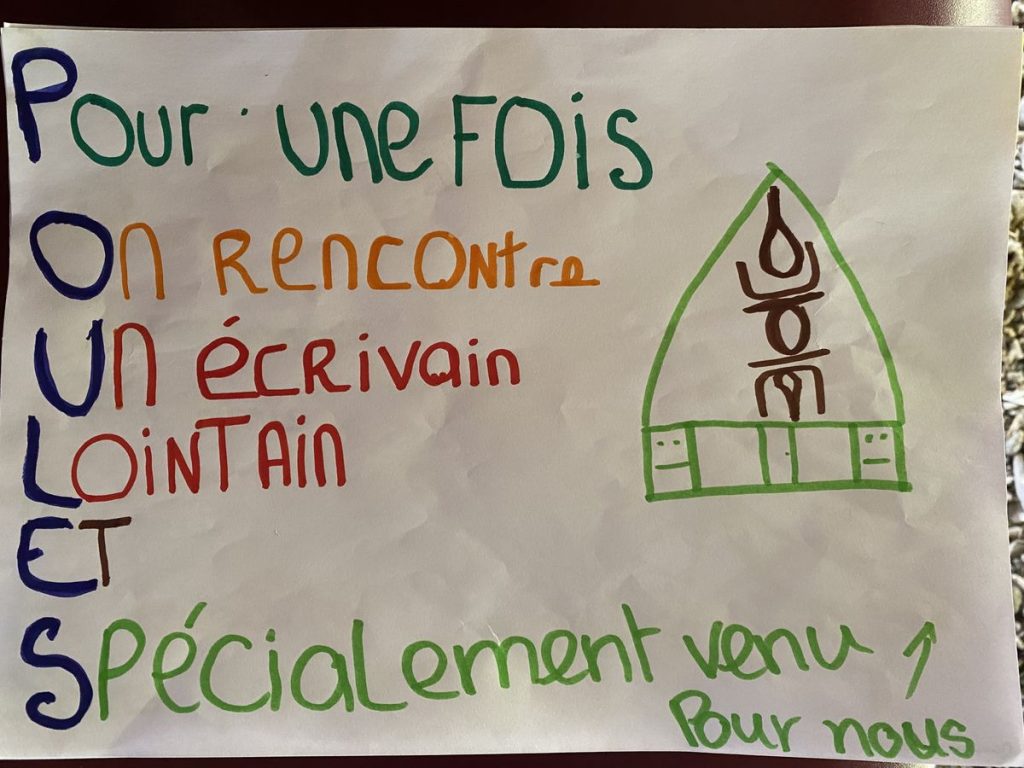 Pour une FOIS
On rencontre
Un écrivain
LOINTAIN
ET
Spécialement venu
Pour nous